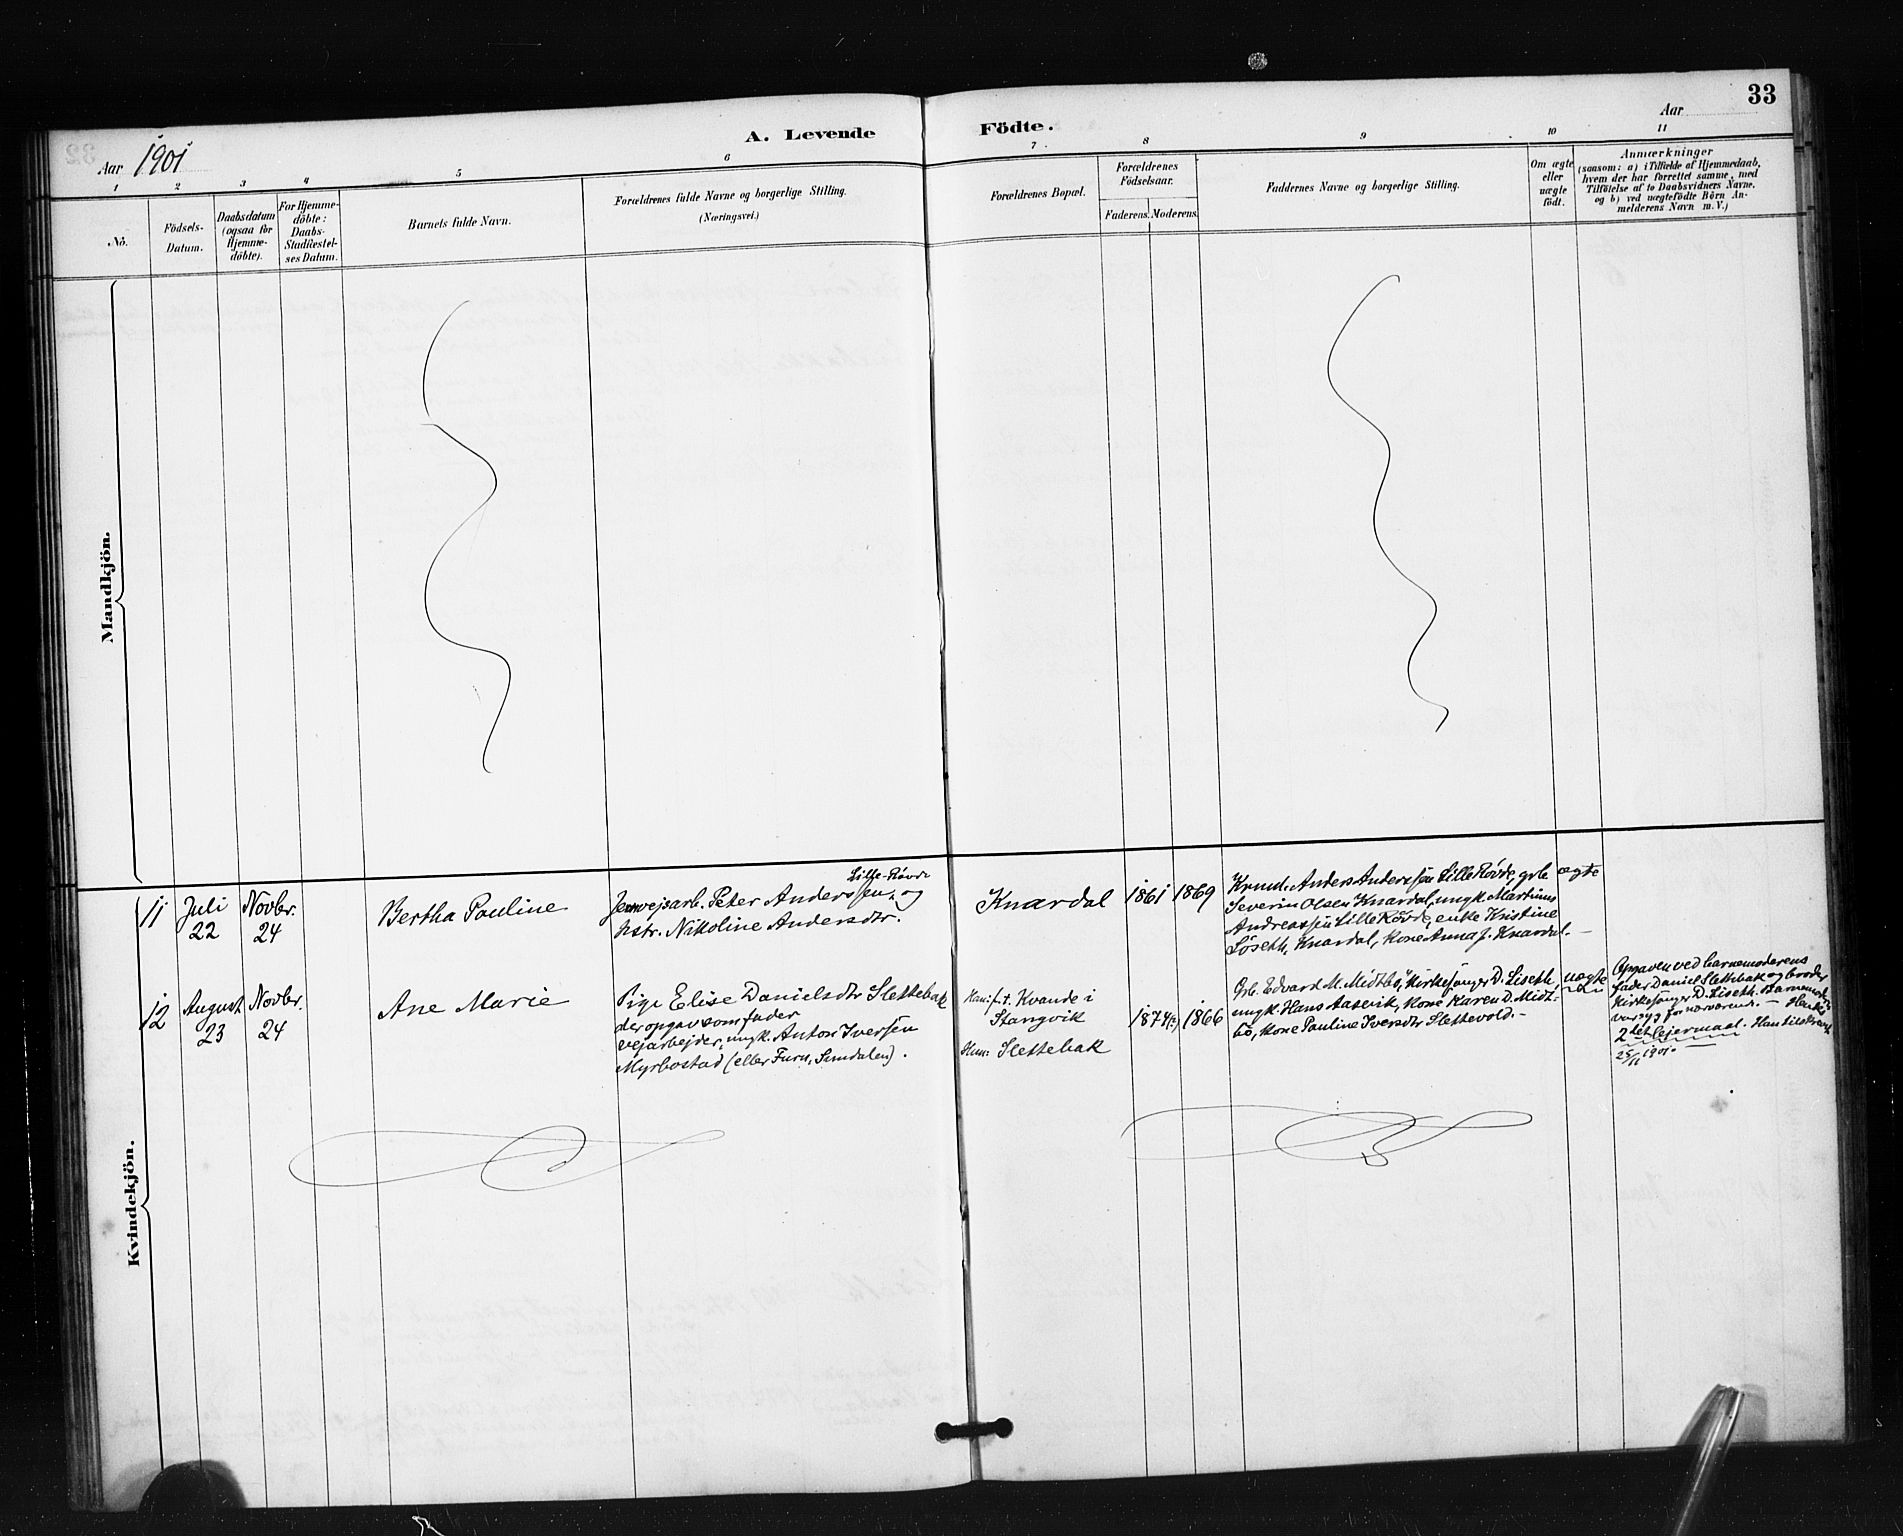 33
A. Levende Födte.
Aar 1901
Aar
1 2 3 4 5 6 7 8 9 10 11
No.
Födsels-
Datum.
Daabsdatum
(ogsaa for
Hjemme-
döbte).
For Hjemme-
döbte:
Daabs-
Stadfæstel-
ses Datum.
Barnets fulde Navn.
Forældrenes fulde Navne og borgerlige Stilling.
(Næringsvei.)
Forældrenes Bopæl.
Forældrenes
Födselsaar.
Faderens. Moderens.
Faddernes Navne og borgerlige Stilling.
Om ægte
eller
uægte
födt.
Anmærkninger
(saasom: a) i Tilfælde af Hjemmedaab,
hvem der har forrettet samme, med
Tilföielse af to Daabsvidners Navne,
og b) ved uægtefödte Börn An-
melderens Navn m. V.)
Mandkjön.
Kvindekjön.
11
Juli
22
Novbr.
24
Bertha Pauline
Lille-Rövde
Jernvejsarb. Peter Anderssen, og
hstr. Nikoline Andersdtr.
Knardal
1861
1869
Krmd. Anders Anderssen Lille Rövde, grb.
Severin Olsen Knardal, ungk. Martinus
Andreassen Lille Rövde, enke Kristine
Löseth, Knardal, kone Anna J. Knardal.-
ægte
12
August
23
Novbr.
24
Ane Marie
Pige Elise Danielsdtr Slettebak
der opgav som fader
vejarbejder, ungk. Anton Iversen
Myrbostad (eller Furu, Sundalen).
Han: p.t. Kvande i
Stangvik
Hun: Slettebak
1874(?)
1866
Grb. Edvard M. Midtbö, Kirkesanger D. Liseth,
ungk. Hans Aasevik, kone Karen D. Midt-
bö, kone Pauline Iversdtr Slettevold.-
uægte
Opgaven ved barnemoderens
fader Daniel Slettebak og broder
Kirkesanger D. Liseth. Barnemoder
var syg fraværende. -
2det Lejermaal. Han tilskrevet
25/11 1901.